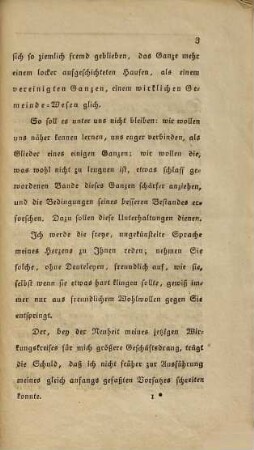 3
sich so ziemlich fremd geblieben, das Ganze mehr
einem locker aufgeschichteten Haufen, als einem
vereinigten Ganzen, einem wirklichen Ge-
meinde-Wesen glich.
So soll es unter uns nicht bleiben: wir wollen
uns näher kennen lernen, uns enger verbinden, als
Glieder eines einigen Ganzen; wir wollen die,
was wohl nicht zu leugnen ist, etwas schlaff ge-
wordenen Bande dieses Ganzen schärfer anziehen,
und die Bedingungen seines besseren Bestandes er-
forschen. Dazu sollen diese Unterhaltungen dienen.
Ich werde die freye, ungekünstelte Sprache
meines Herzens zu Ihnen reden; nehmen Sie
solche, ohne Deuteleyen, freundlich auf, wie sie,
selbst wenn sie etwas hart klingen sollte, gewiß im-
mer nur aus freundlichem Wohlwollen gegen Sie
entspringt.
Der, bey der Neuheit meines jetzigen Wir-
kungskreises für mich größere Geschäftsdrang, trägt
die Schuld, daß ich nicht früher zur Ausführung
meines gleich anfangs gefaßten Vorsatzes schreiten
konnte.
1 *